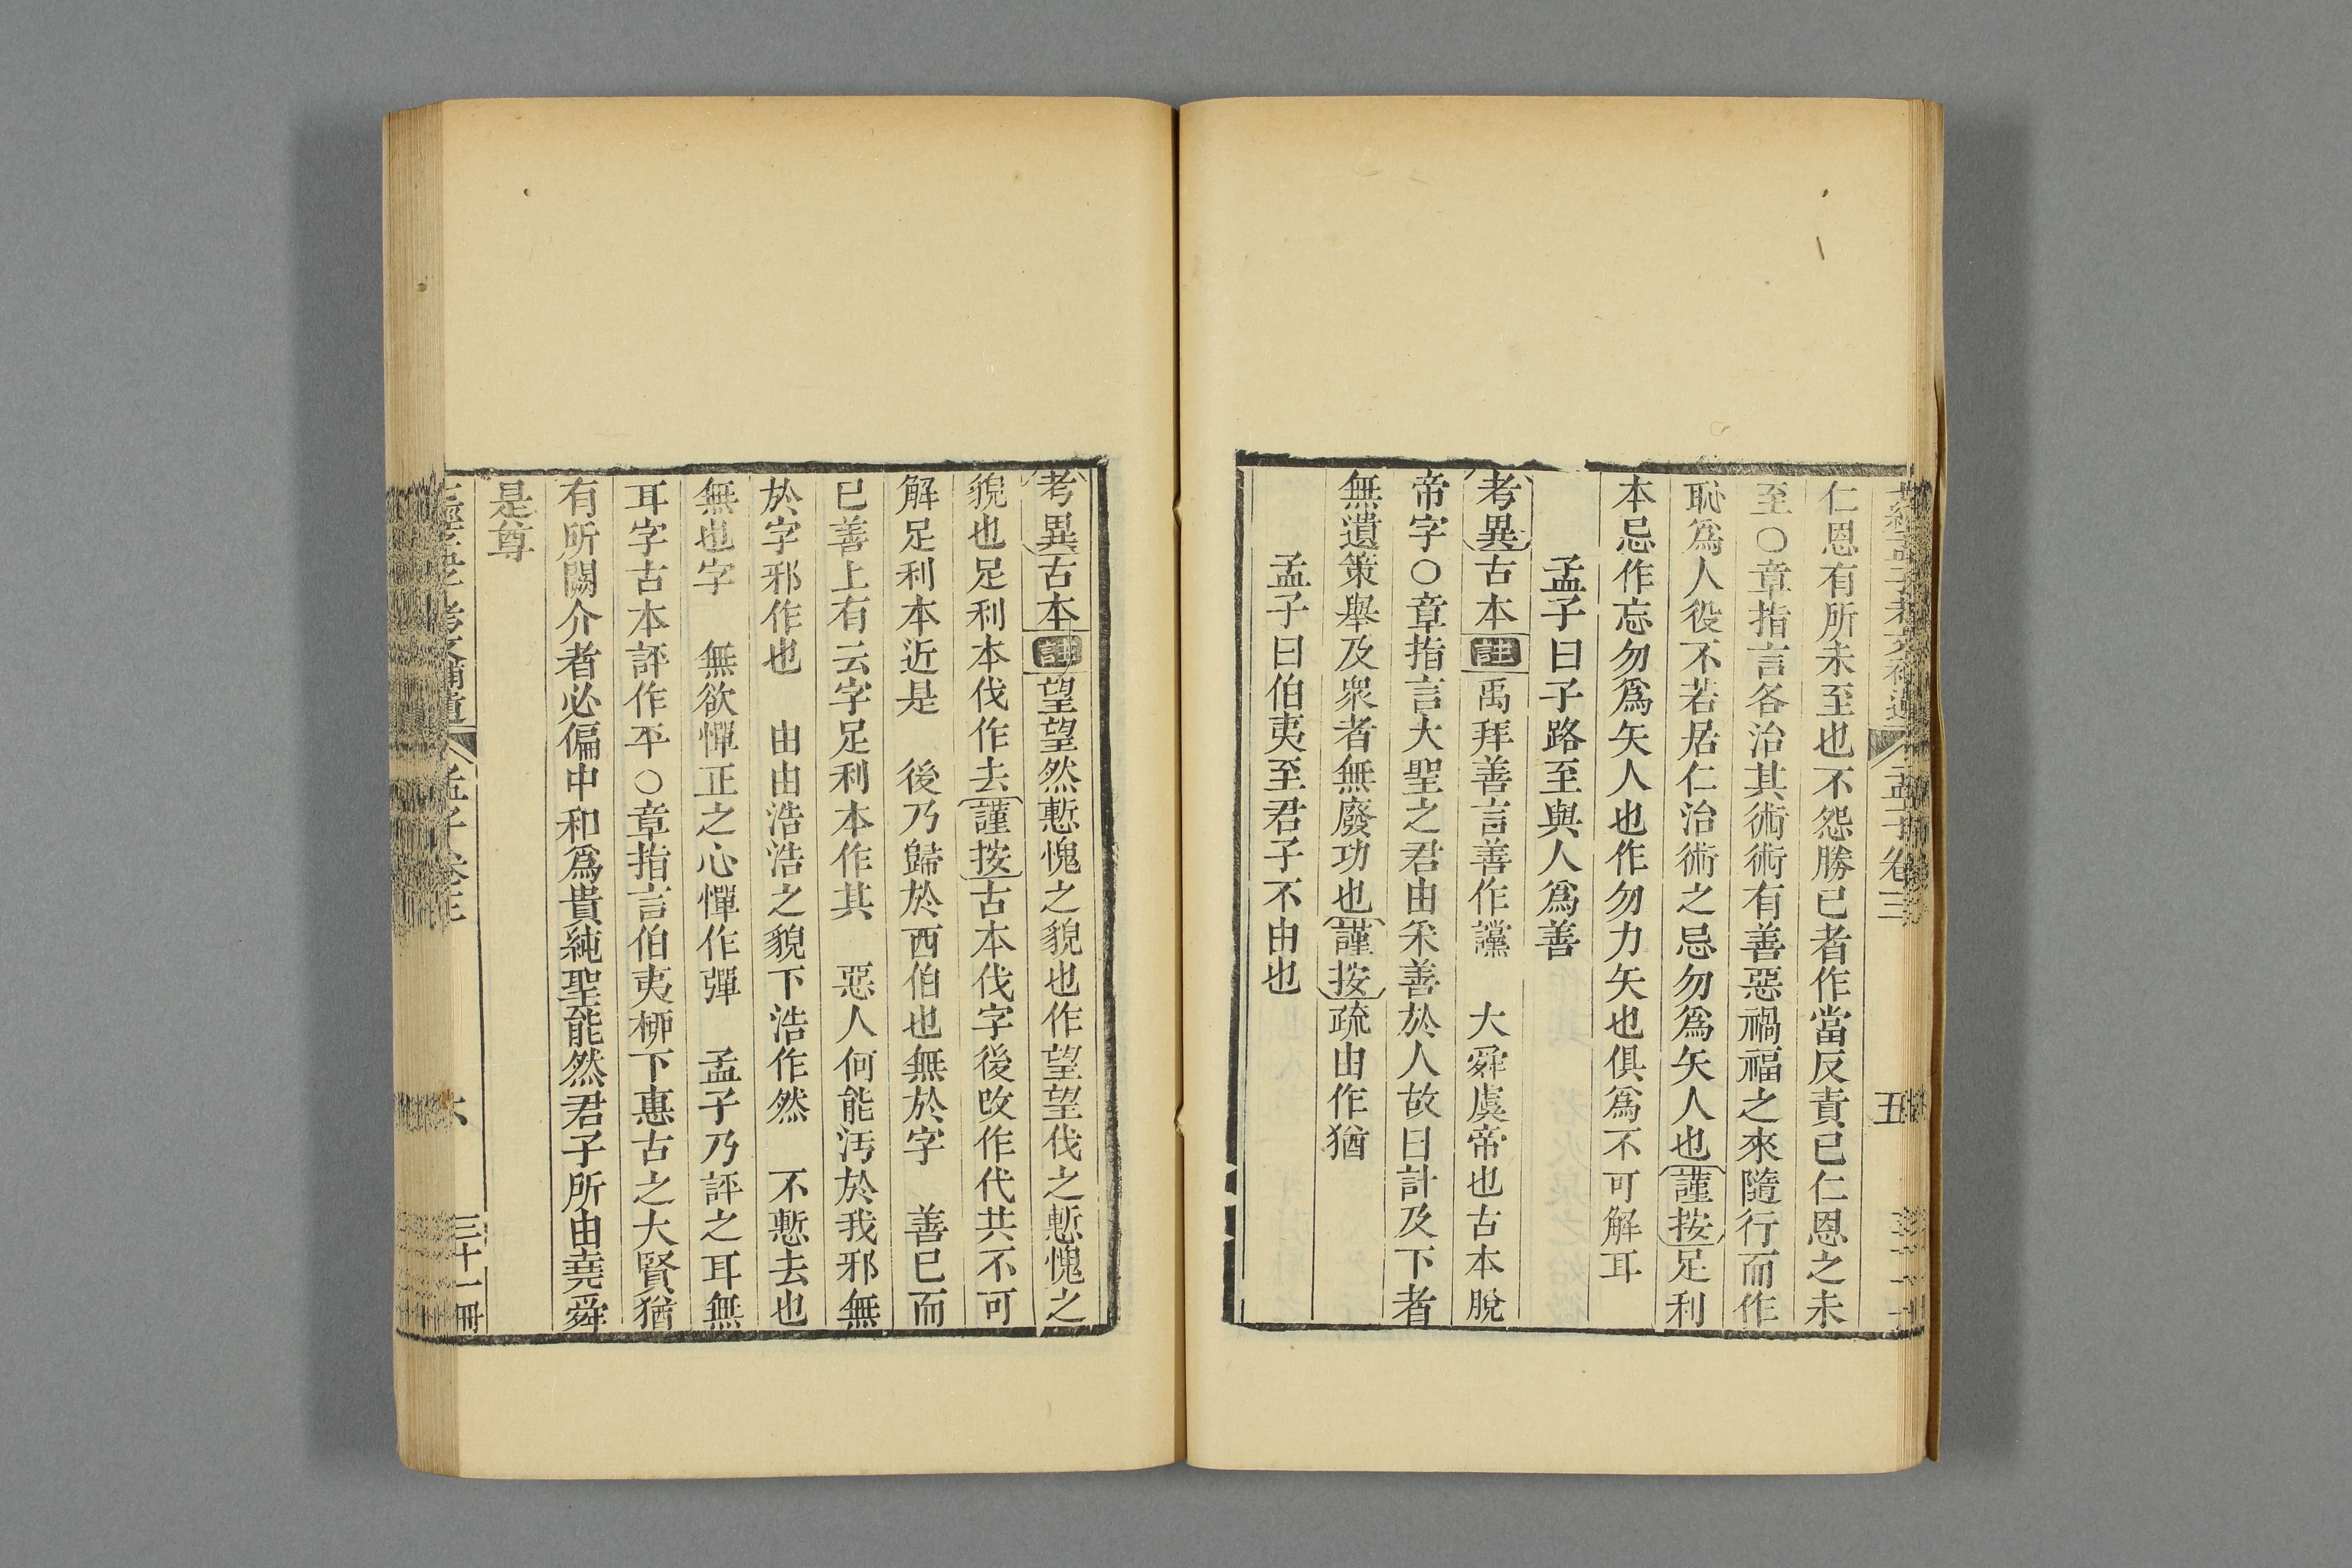 孟子卷三
五
仁恩有所未至也不怨勝已者作當反責已仁恩之未
至○章指言各治其術術有善惡禍福之來隨行而作
恥爲人役不若居仁治術之忌勿爲矢人也謹按足利
本忌作忘勿爲矢人也作勿力矢也俱爲不可解耳
孟子曰子路至與人爲善
考異古本註禹拜善言善作讜　大舜虞帝也古本脫
帝字○章指言大聖之君由采善於人故曰計及下者
無遺策舉及衆者無廢功也謹按疏由作猶
孟子曰伯夷至君子不由也
考異古本註望望然慙愧之貌也作望望伐之慙愧之
貌也足利本伐作去謹按古本伐字後改作代共不可
解足利本近是　後乃歸於西伯也無於字　善巳而
巳善上有云字足利本作其　惡人何能汚於我邪無
於字邪作也　由由浩浩之貌下浩作然　不慙去也
無也字　無欲憚正之心憚作彈　孟子乃評之耳無
耳字古本評作平○章指言伯夷柳下惠古之大賢猶
有所闕介者必偏中和爲貴純聖能然君子所由堯舜
是尊
六
三十一冊